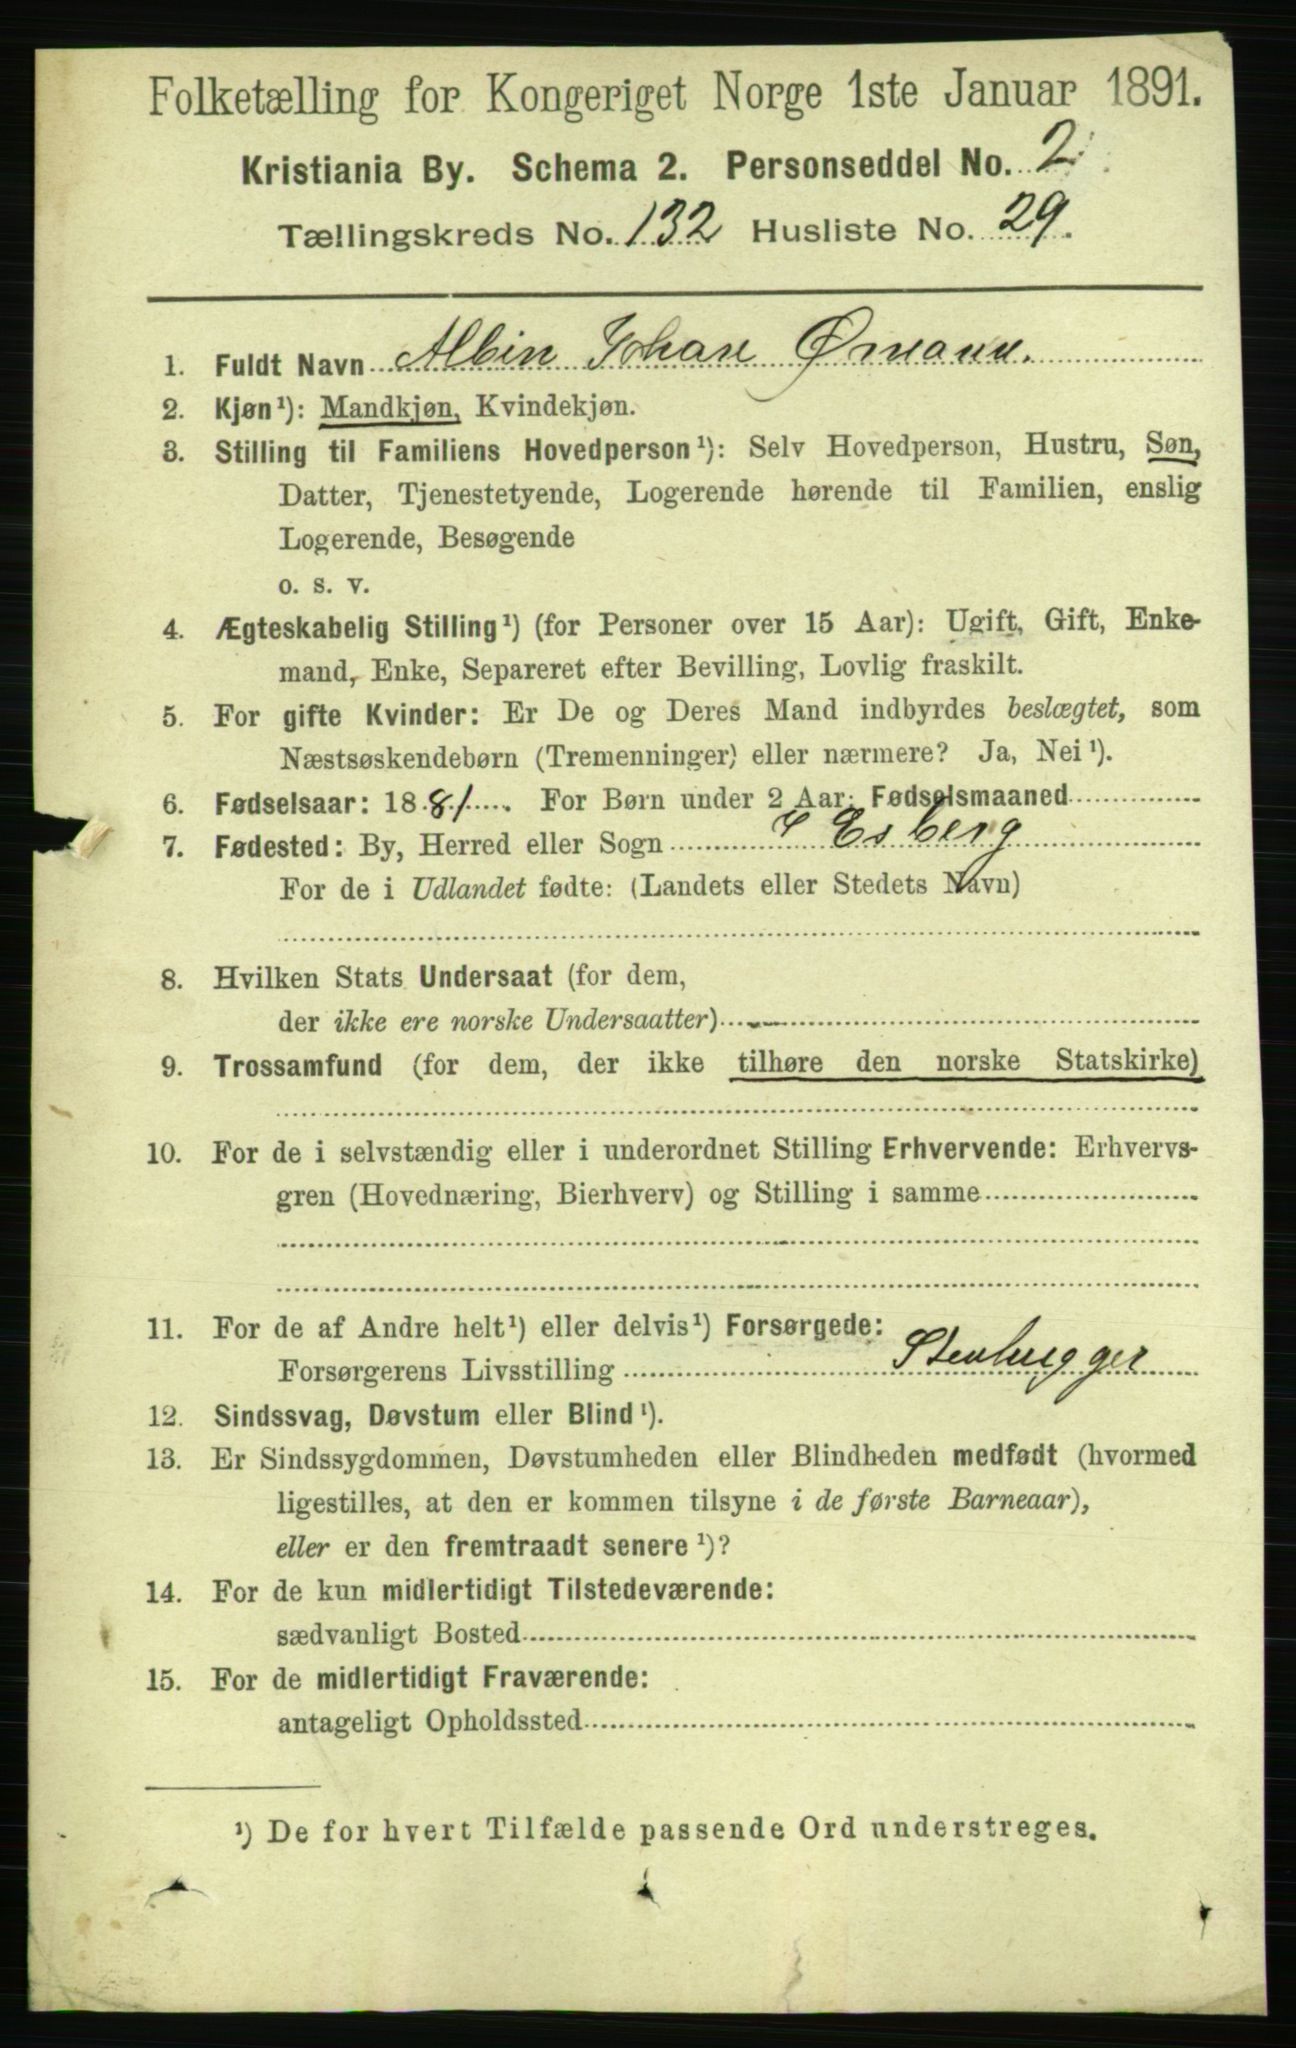 Folketælling for Kongeriget Norge 1ste Januar 1891.
Kristiania By. Schema 2. Personseddel No. 2
Tællingskreds No. 132 Husliste No. 29.
1. Fuldt Navn Albin Johan Ømann.
2. Kjøn¹): Mandkjøn, Kvindekjøn.
3. Stilling til Familiens Hovedperson¹): Selv Hovedperson, Hustru, Søn,
Datter, Tjenestetyende, Logerende hørende til Familien, enslig
Logerende, Besøgende
o. s. v.
4. Ægteskabelig Stilling¹) (for Personer over 15 Aar): Ugift, Gift, Enke-
mand, Enke, Separeret efter Bevilling, Lovlig fraskilt.
5. For gifte Kvinder: Er De og Deres Mand indbyrdes beslægtet, som
Næstsøskendebørn (Tremenninger) eller nærmere? Ja, Nei¹).
6. Fødselsaar: 1881. For Børn under 2 Aar: Fødselsmaaned
7. Fødested: By, Herred eller Sogn Esberg
For de i Udlandet fødte: (Landets eller Stedets Navn)
8. Hvilken Stats Undersaat (for dem,
der ikke ere norske Undersaatter)
9. Trossamfund (for dem, der ikke tilhøre den norske Statskirke)
10. For de i selvstændig eller i underordnet Stilling Erhvervende: Erhvervs-
gren (Hovednæring, Bierhverv) og Stilling i samme
11. For de af Andre helt¹) eller delvis¹) Forsørgede:
Forsørgerens Livsstilling Stenhugger
12. Sindssvag, Døvstum eller Blind¹).
13. Er Sindssygdommen, Døvstumheden eller Blindheden medfødt (hvormed
ligestilles, at den er kommen tilsyne i de første Barneaar),
eller er den fremtraadt senere¹)?
14. For de kun midlertidigt Tilstedeværende:
sædvanligt Bosted
15. For de midlertidigt Fraværende:
antageligt Opholdssted
¹) De for hvert Tilfælde passende Ord understreges.